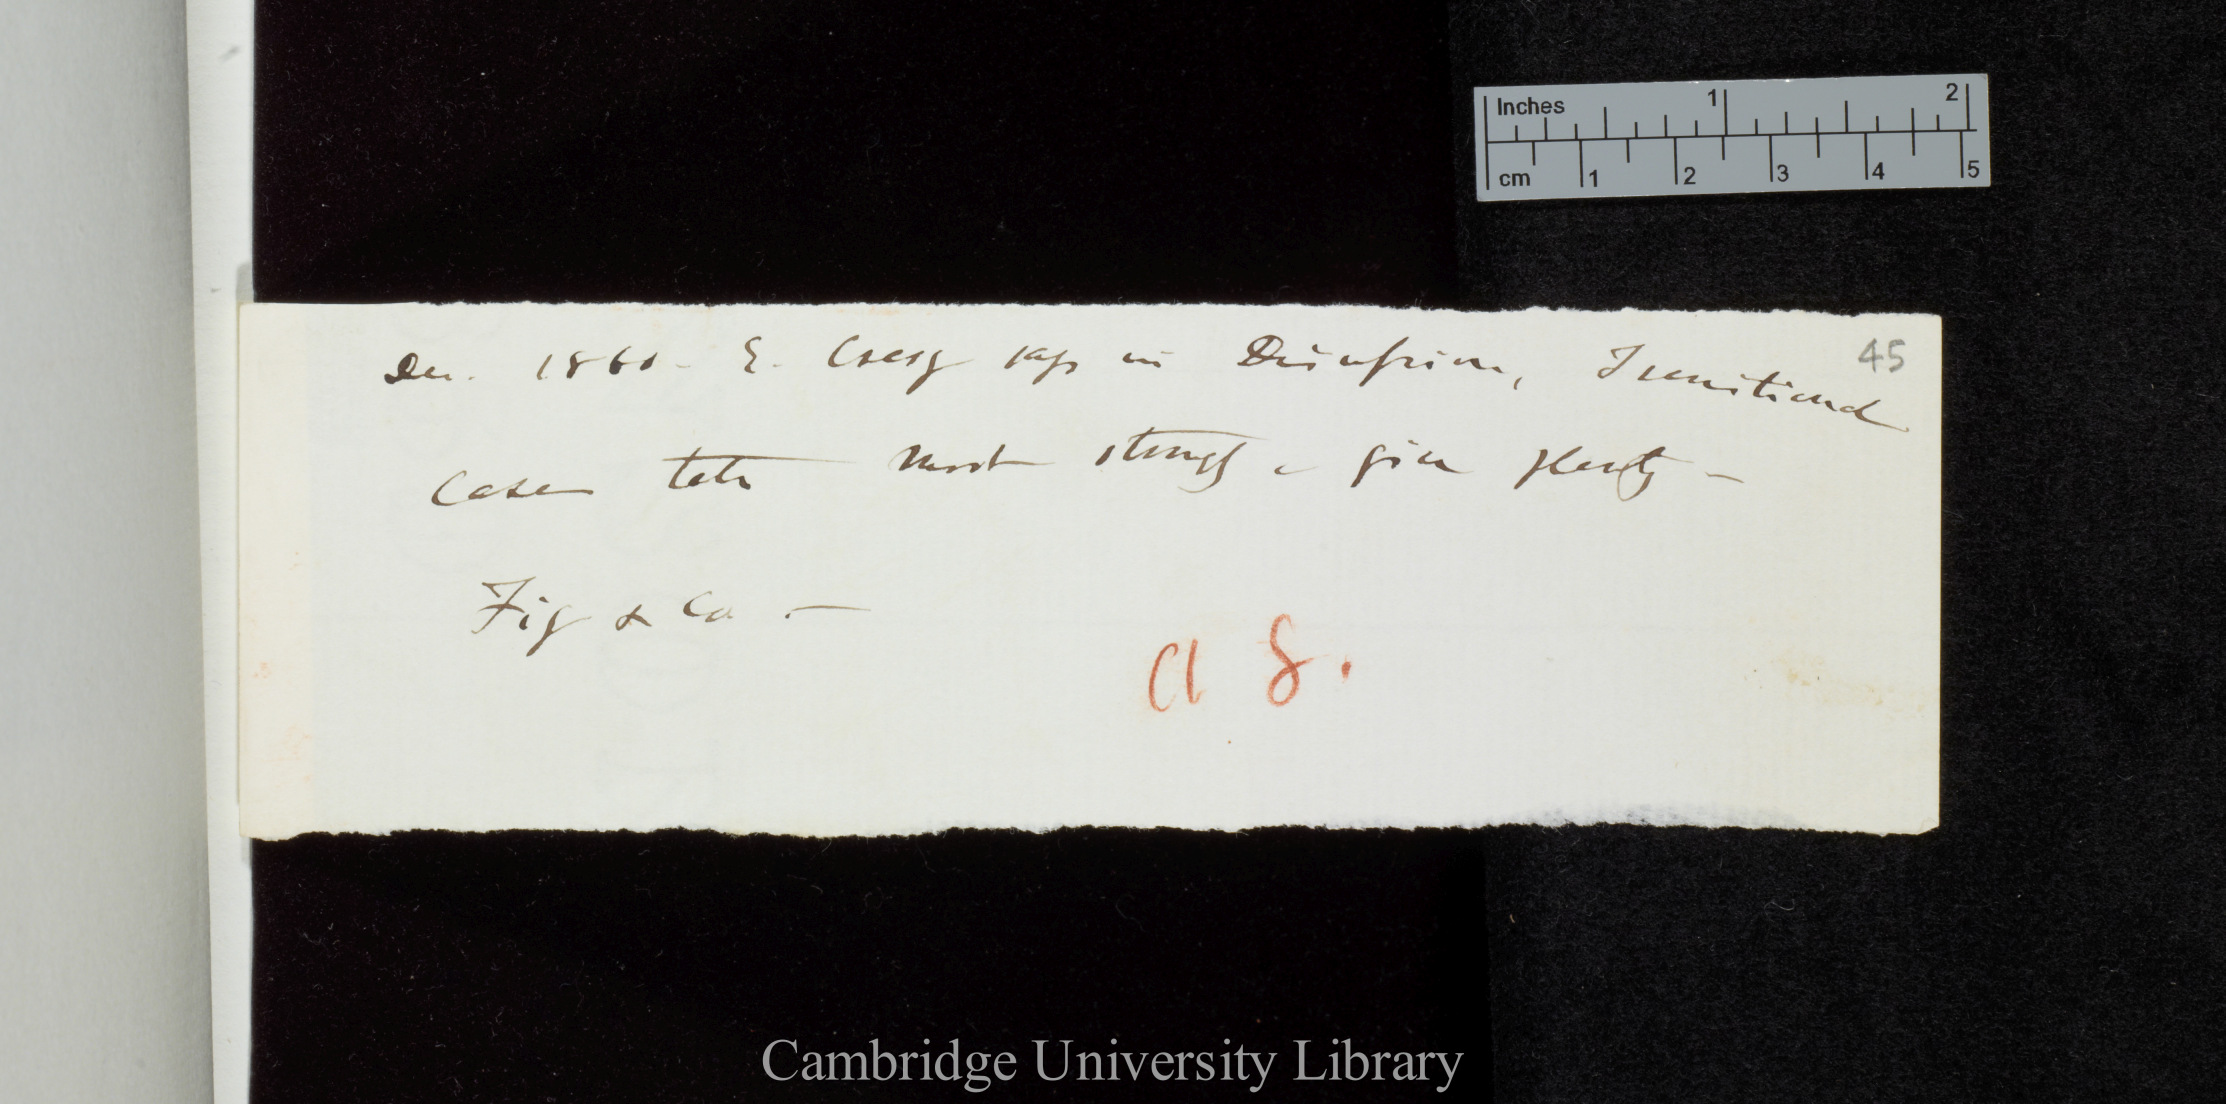 Inches 1 2
cm 1 2 3 4 5
45
Dec. 1860 - E. Cresy says in Discussion, Transitional
Cases tell most strongly & give plenty —
Fig & Co —
Cl 8.
Cambridge University Library